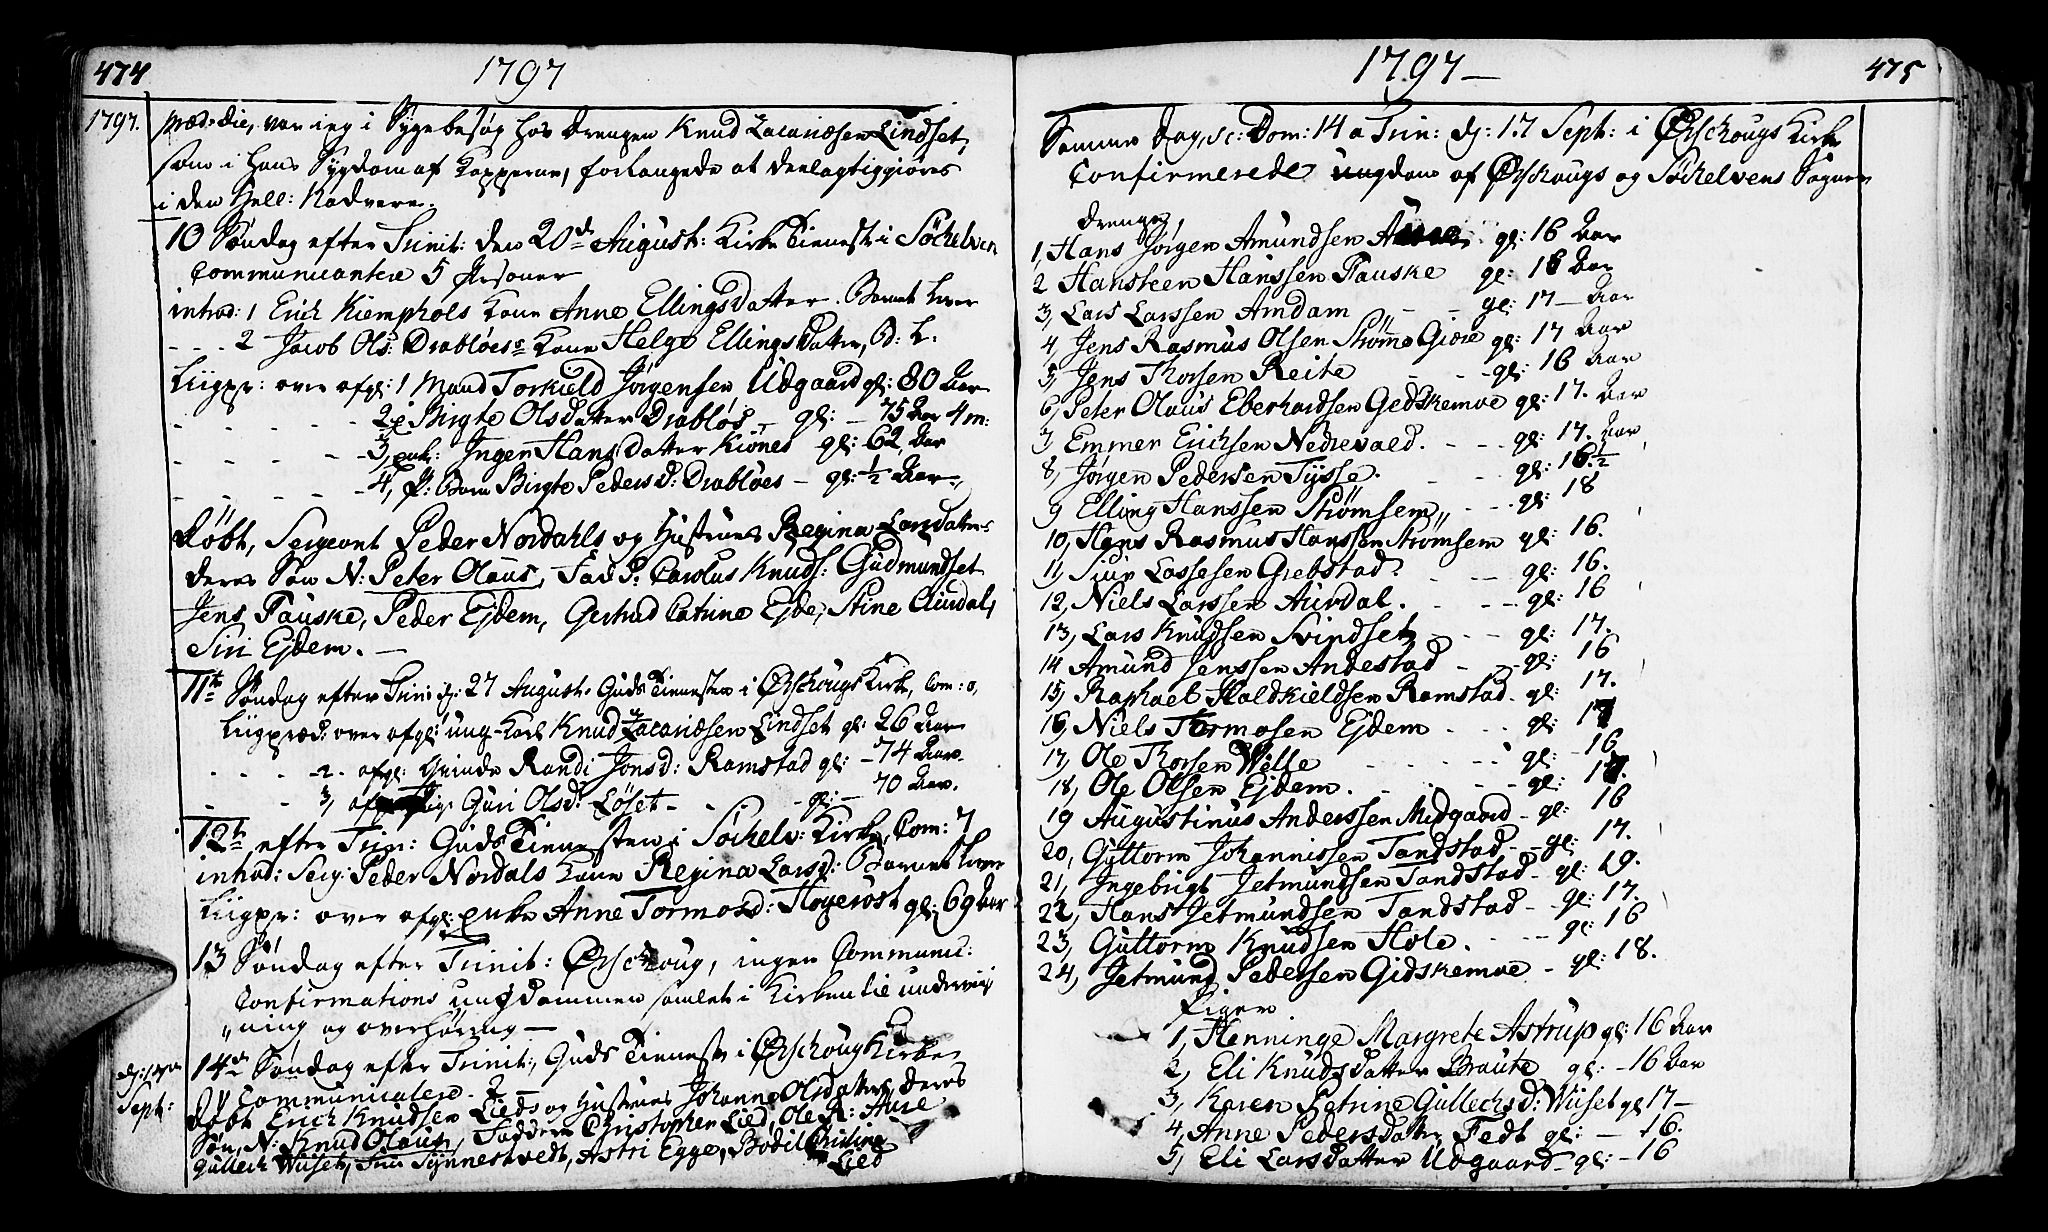 474
1797
1797.
præd: die, var ieg i Sÿgebesøg hos Drengen Knud Zacariæsen Lindset,
som i hans Sÿgdom af Kopperne, forlangede at deelagtiggiøres
i den Hell: Nadvere.
10 Søndag efter Trinit: den 20de August: Kirke Tieneste i Søchelven
Communicantere 5 Personer
introd: 1 Erich Kiemphols Kone Anne Ellingsdatter. Barnet lever
- - - 2 Jacob Ols: Drabløes Kone Helge Ellingsdatter, B: l.
Liigpr: over afg: 1 Mand Torkield Jørgensen Udgaard gl: 80 Aar
2 Birgte Olsdatter Drabløs - gl: - 75 Aar 4 m:
3, enk: Ingen Hansdatter Kiönes gl: 62 Aar
4, P: Barn Birgte Pedersd: Drabløes - gl: ½ Aar
Døbt, Sergeant Peder Nordahls og Hustrues Regina Larsdatters
deres Søn N: Peter Olaus, Fad: Carolus Knuds: Gudmundset
Jens Fauske, Peder Ejdem, Gertrud Catrine Ejde, Stine Aurdal,
Siri Ejdem. -
11te Søndag efter Trin: d: 27 August: Guds Tienesten i Ørschougs Kirke, Com: 0,
Liigpræd: over afgl: ung-Karl Knud Zacariæsen Lindset gl: 26 Aar
2. afgl: Qvinde Randi Jonsd: Ramstad gl: - 74 Aar.
3, Guri Olsd: Løset - gl: - 70 Aar.
12te efter Trin: Guds Tienesten i Søchelv: Kirke, Com: 7
introd: Serg: Peder Nordals Kone Regina Larsd: Barnet lever
Liigpr: over afgl: enke Anne Tormosd: Højeröst gl: 69 Aar
13 Søndag efter Trinit: Ørschoug, ingen Communic:
Confirmations ungdommen samlet i Kirken til underviis
ning og overhøring -
14de Søndag efter Trinit:, Guds Tieneste i Ørschoug Kirke
Sept:
Communicatere - 2
Døbt Erich Knudsen Lieds og Hustrues Johanne Olsdatters deres
Søn, N: Knud Olaus, Faddere Christopher Lied, Ole R: Aure
Gullech Wiiset, Siri Sÿnnestvedt, Astri Egge, Bodil Christina
Lied
1797 -
475
Samme Dag, sc: Dom: 14 a Trin: d: 17 Sept: i Ørschougs Kirke
Confirmerede ungdom af Ørschougs og Søchelvens Sogner
Drenge
1, Hans Jørgen Amundsen gl: 16 Aar
2 Hansteen Hanssen Fauske gl: 16 Aar
3, Lars Larssen Amdam - - gl: 17 - Aar
4, Jens Rasmus Olsen Strømegiære gl: 17 Aar
5, Jens Thorsen Reite - - gl: 16 Aar
6, Peter Olaus Eberhardsen Gedskemoe gl: 17. Aar
7 Emmer Erichsen Nedrevald. - - - gl: 17. Aar
8, Jørgen Pedersen Tÿsse. - - gl: 16.½
9 Elling Hanssen Strømsem - - - gl: 18
10, Hans Rasmus Hanssen Strømsem gl: 16.
11, Siur Lassesen Grebstad. - - gl: 16.
12, Niels Larssen Aurdal. - - - gl: 16
13, Lars Knudsen Svindset - - - gl: 17.
14 Amund Jenssen Andestad - - gl: 16
15, Raphael Haldkieldsen Ramstad - gl: 17.
16, Niels Tormosen Ejdem - - - gl: 17
17, Ole Thorsen Wølle - - - gl: - 16
18, Ole Olsen Ejdem. - - - gl: 17.
19 Augustinus Anderssen Midgaard - gl: 16
20, Guttorm Johannissen Tandstad - - gl: 17.
21, Ingebrigt Jetmundsen Tandstad - gl: 19.
22, Hans Jetmundsen Tandstad - - gl: 17.
23, Guttorm Knudsen Hole. - - - gl: 16
24, Jetmund Pedersen Gidskemoe - gl: 18.
Piger
1, Henninge Margrete Astrup gl: 16 Aar
2, Eli Knudsdatter Braute gl: - 16 Aar
3, Karen Petrine Gullechsd: Wiiset gl 17 -
4, Anne Pedersdatter Fedt gl: - 16.
5, Eli Larsdatter Udgaard - gl: - 16